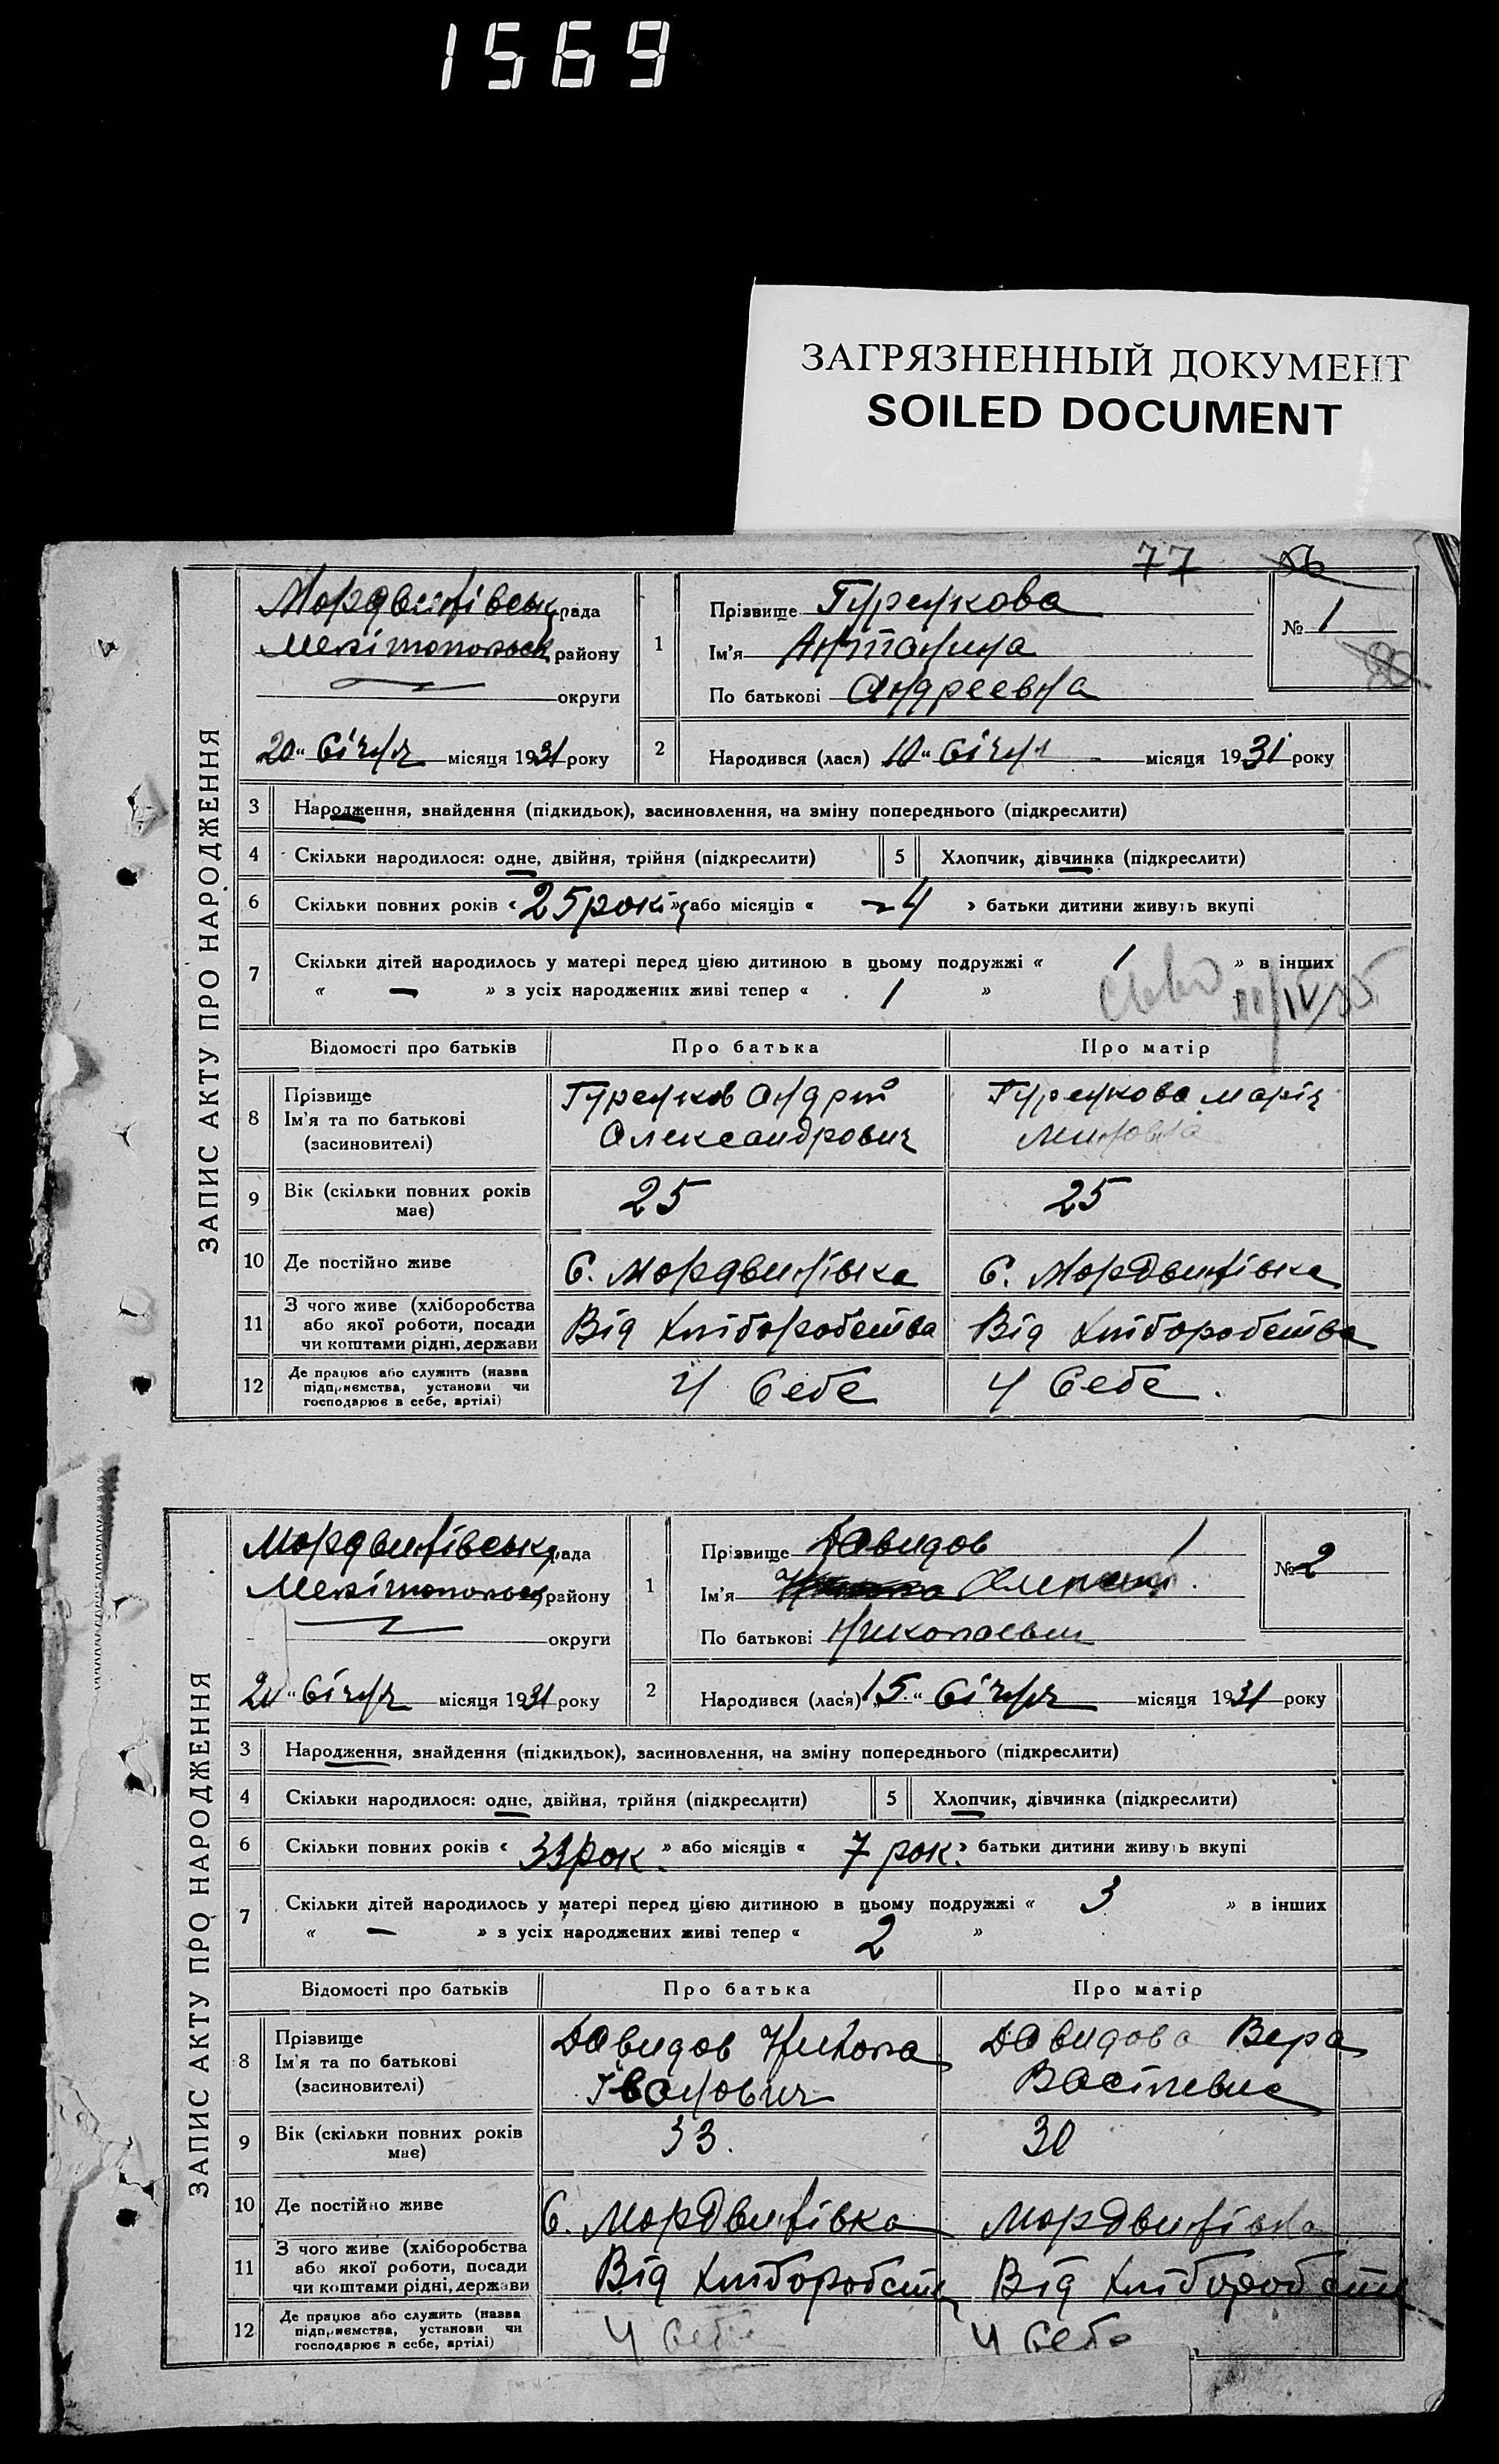 1569
ЗАГРЯЗНЕННЫЙ ДОКУМЕНТ
SOILED DOCUMENT
77
ЗАПИС АКТУ ПРО НАРОДЖЕННЯ
Мордвинівськ рада
Мелітопольськ району
округи
20 " Січня місяця 1931 року
1
Прізвище Гуренкова
Ім'я Антоніна
По батькові Андреевна
№ 1
2
Народився (лася) 10 " Січня місяця 1931 року
3 Народження, знайдення (підкидьок), засиновлення, на зміну попереднього (підкреслити)
4 Скільки народилося: одне, двійня, трійня (підкреслити) 5 Хлопчик, дівчинка (підкреслити)
6 Скільки повних років « 25 рокі » або місяців « 4 » батьки дитини живуть вкупі
7 Скільки дітей народилось у матері перед цією дитиною в цьому подружжі « 1 » в інших
« — » з усіх народжених живі тепер « 1 »
Відомості про батьків Про батька Про матір
8 Прізвище Ім'я та по батькові (засновителі) Гуренков Андрій Олександрович Гуренкова Марія
9 Вік (скільки повних років має) 25 25
10 Де постійно живе С. Мордвинівка С. Мордвинівка
11 З чого живе (хліборобства або якої роботи, посади чи коштами рідні, держави Від хліборобства Від хліборобства
12 Де працює або служить (назва підприємства, установи чи господарює в себе, артілі) У Себе У Себе.
ЗАПИС АКТУ ПРО НАРОДЖЕННЯ
Мордвинівськ рада
Мелітопольськ району
округи
20 " Січня місяця 1931 року
1
Прізвище Давидов
Ім'я
По батькові Николаевич
№ 2
2
Народився (лася) 15 " Січня місяця 1931 року
3 Народження, знайдення (підкидьок), засиновлення, на зміну попереднього (підкреслити)
4 Скільки народилося: одне, двійня, трійня (підкреслити) 5 Хлопчик, дівчинка (підкреслити)
6 Скільки повних років « 33 рок. » або місяців « 7 рок. » батьки дитини живуть вкупі
7 Скільки дітей народилось у матері перед цією дитиною в цьому подружжі « 3 » в інших
« — » з усіх народжених живі тепер « 2 »
Відомості про батьків Про батька Про матір
8 Прізвище Ім'я та по батькові (засиновителі) Давидов Никола Іванович Давидова Вера Васілевна
9 Вік (скільки повних років має) 33. 30
10 Де постійно живе С. Мордвинівка Мордвинівка
11 З чого живе (хліборобства або якої роботи, посади чи коштами рідні, держави Від хліборобств Від хліборобств
12 Де працює або служить (назва підприємства, установи чи господарює в себе, артілі) У Себе У Себе